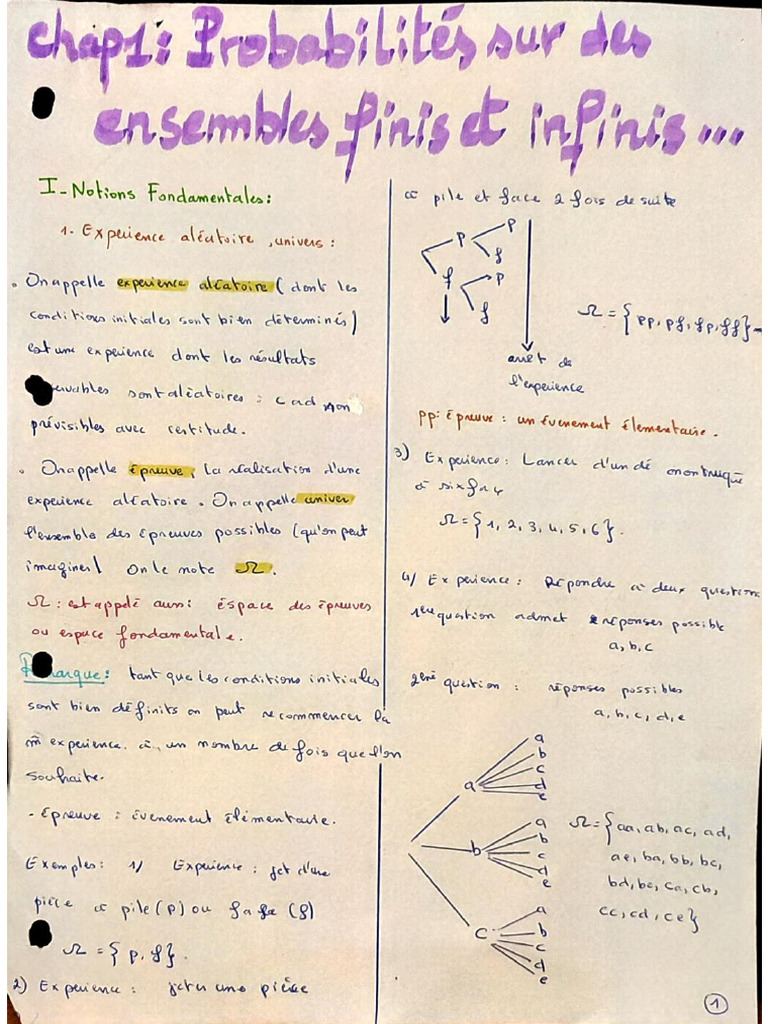 chap1: Probabilités sur des
ensembles finis et infinis...
I- Notions Fondamentales:
1- Experience aléatoire, univers :
. On appelle experience aléatoire ( dont les
conditions initiales sont bien determinés)
est une experience dont les résultats
ervables sont aléatoires : c ad non
prévisibles avec certitude.
. On appelle épreuve, la réalisation d'une
experience aléatoire . On appelle univer
l'ensemble des épreuves possibles (qu'on peut
imaginer) On le note Ω.
Ω : est appelé aussi espace des épreuves
ou espace fondamentale.
Remarque: tant que les conditions initiales
sont bien définits on peut recommencer la
m̂ experience. à un nombre de fois que l'on
souhaite.
- épreuve : évenement élémentaire.
Exemples: 1/ Experience : jet d'une
pièce à pile (p) ou face (f)
Ω = { p, f }.
2) Experience : jeter une pièce
à pile et face 2 fois de suite
p p
f
f p
f
Ω = { pp, pf, fp, ff }
arret de
l'experience
pp: épreuve : un évenement élementaire .
3) Experience: Lancer d'un dé
à six
Ω = { 1, 2, 3, 4, 5, 6 } .
4/ Experience : Répondre à deux question
1ere question admet réponses possible
a, b, c
2ème question : réponses possibles
a, b, c, d, e
a a
b
c
d
e
b a
b
c
d
e
c a
b
c
d
e
Ω = { aa, ab, ac, ad,
ae, ba, bb, bc,
bd, be, ca, cb,
cc, cd, ce }
1